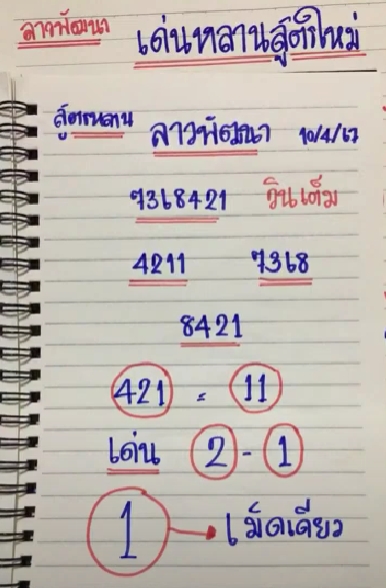 ลาวพัฒนา เด่นหลานสูตรใหม่
สูตรหลาน ลาวพัฒนา 10/4/67
7368421 วินเต็ม
4211 7368
8421
421 = 11
เด่น 2 - 1
1 เม็ดเดียว